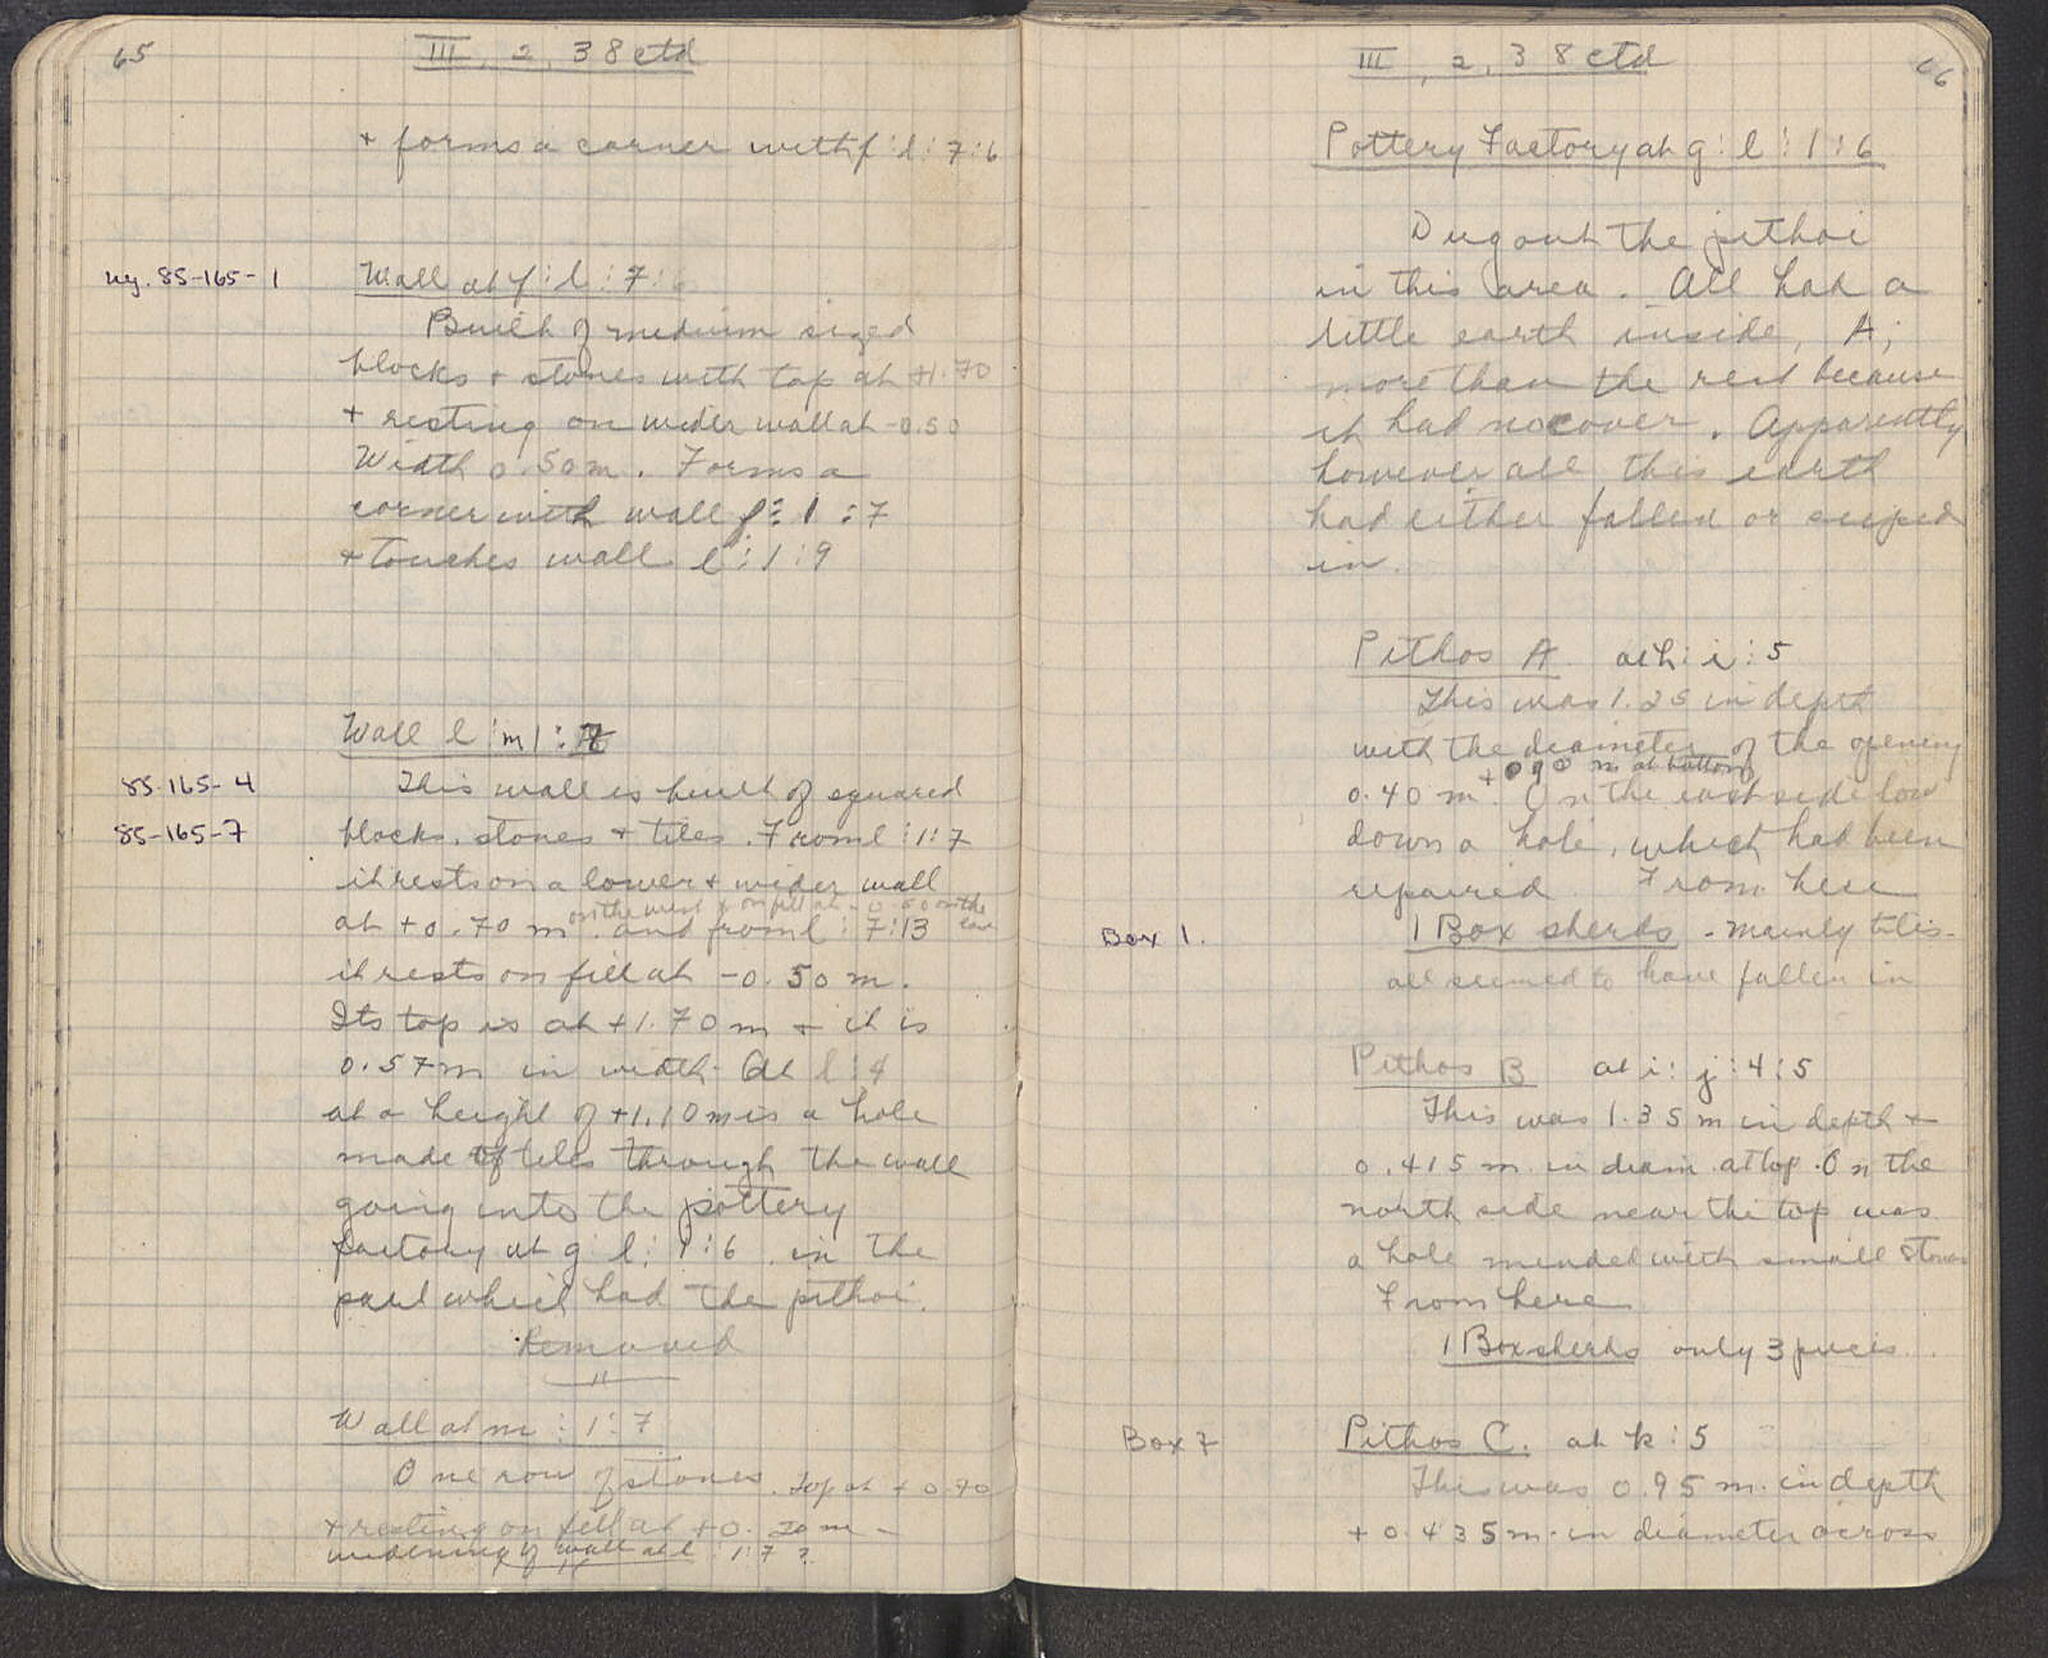 65
III, 2, 38 ctd
+ forms a corner with f:l:7:6
neg. 85-165-1
Wall at f:l:7:6
Built of medium sized
blocks + stones with top at +1.70
+ resting on wider wall at -0.50
Width 0.50 m. Forms a
corner with wall f:1:7
+ touches wall l:1:9
Wall l:m 1:7
85-165-4
This wall is built of squared
85-165-7
blocks, stones + tiles. From l:1:7
it rests on a lower + wider wall
on the west & on fill at -0.50 on the east
at +0.70 m. and from l:7:13
it rests on fill at -0.50 m.
Its top is at +1.70 m + it is
0.57 m in width. At l:4
at a height of +1.10 m is a hole
made of tiles through the wall
going into the pottery
factory at g:l:1:6 in the
part which had the pithoi.
Removed
Wall at m:1:7
One row of stones. Top at +0.70
+ resting on fill at +0.50 m -
widening of wall at l:1:7?
III, 2, 38 ctd
66
Pottery Factory at g:l:1:6
Dug out the pithoi
in this area. All had a
little earth inside, A,
more than the rest because
it had no cover. Apparently
however all this earth
had either fallen or seeped
in.
Pithos A at h:i:5
This was 1.25 in depth
with the diameter of the opening
+ 0.90 m at bottom
0.40 m. On the east side low
down a hole, which had been
repaired. From here
Box 1.
1 Box sherds - mainly tiles -
all seemed to have fallen in
Pithos B at i:j:4:5
This was 1.35 m in depth +
0.415 m in diam. at top. On the
north side near the top was
a hole mended with small stones
From here
1 Box sherds only 3 pieces.
Box 7
Pithos C. at k:5
This was 0.95 m. in depth
+ 0.435 m. in diameter across